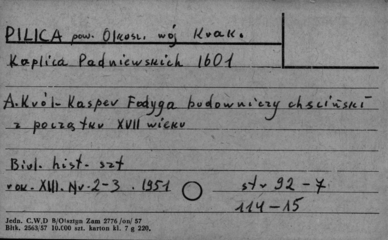 PILICA pow. Olkusz. wój Krak.
Kaplica Padniewskich 1601
A. Król - Kasper Fodyga budowniczy chęciński
z początku XVII wieku
Biul. hist. szt
rok. XIII. Nr. 2-3. 1951 str 92-7
114-15
Jedn. C.W.D 8/Olsztyn Zam 2776/on/57
Bltk. 2563/57 10.000 szt. karton kl. 7 g 220.